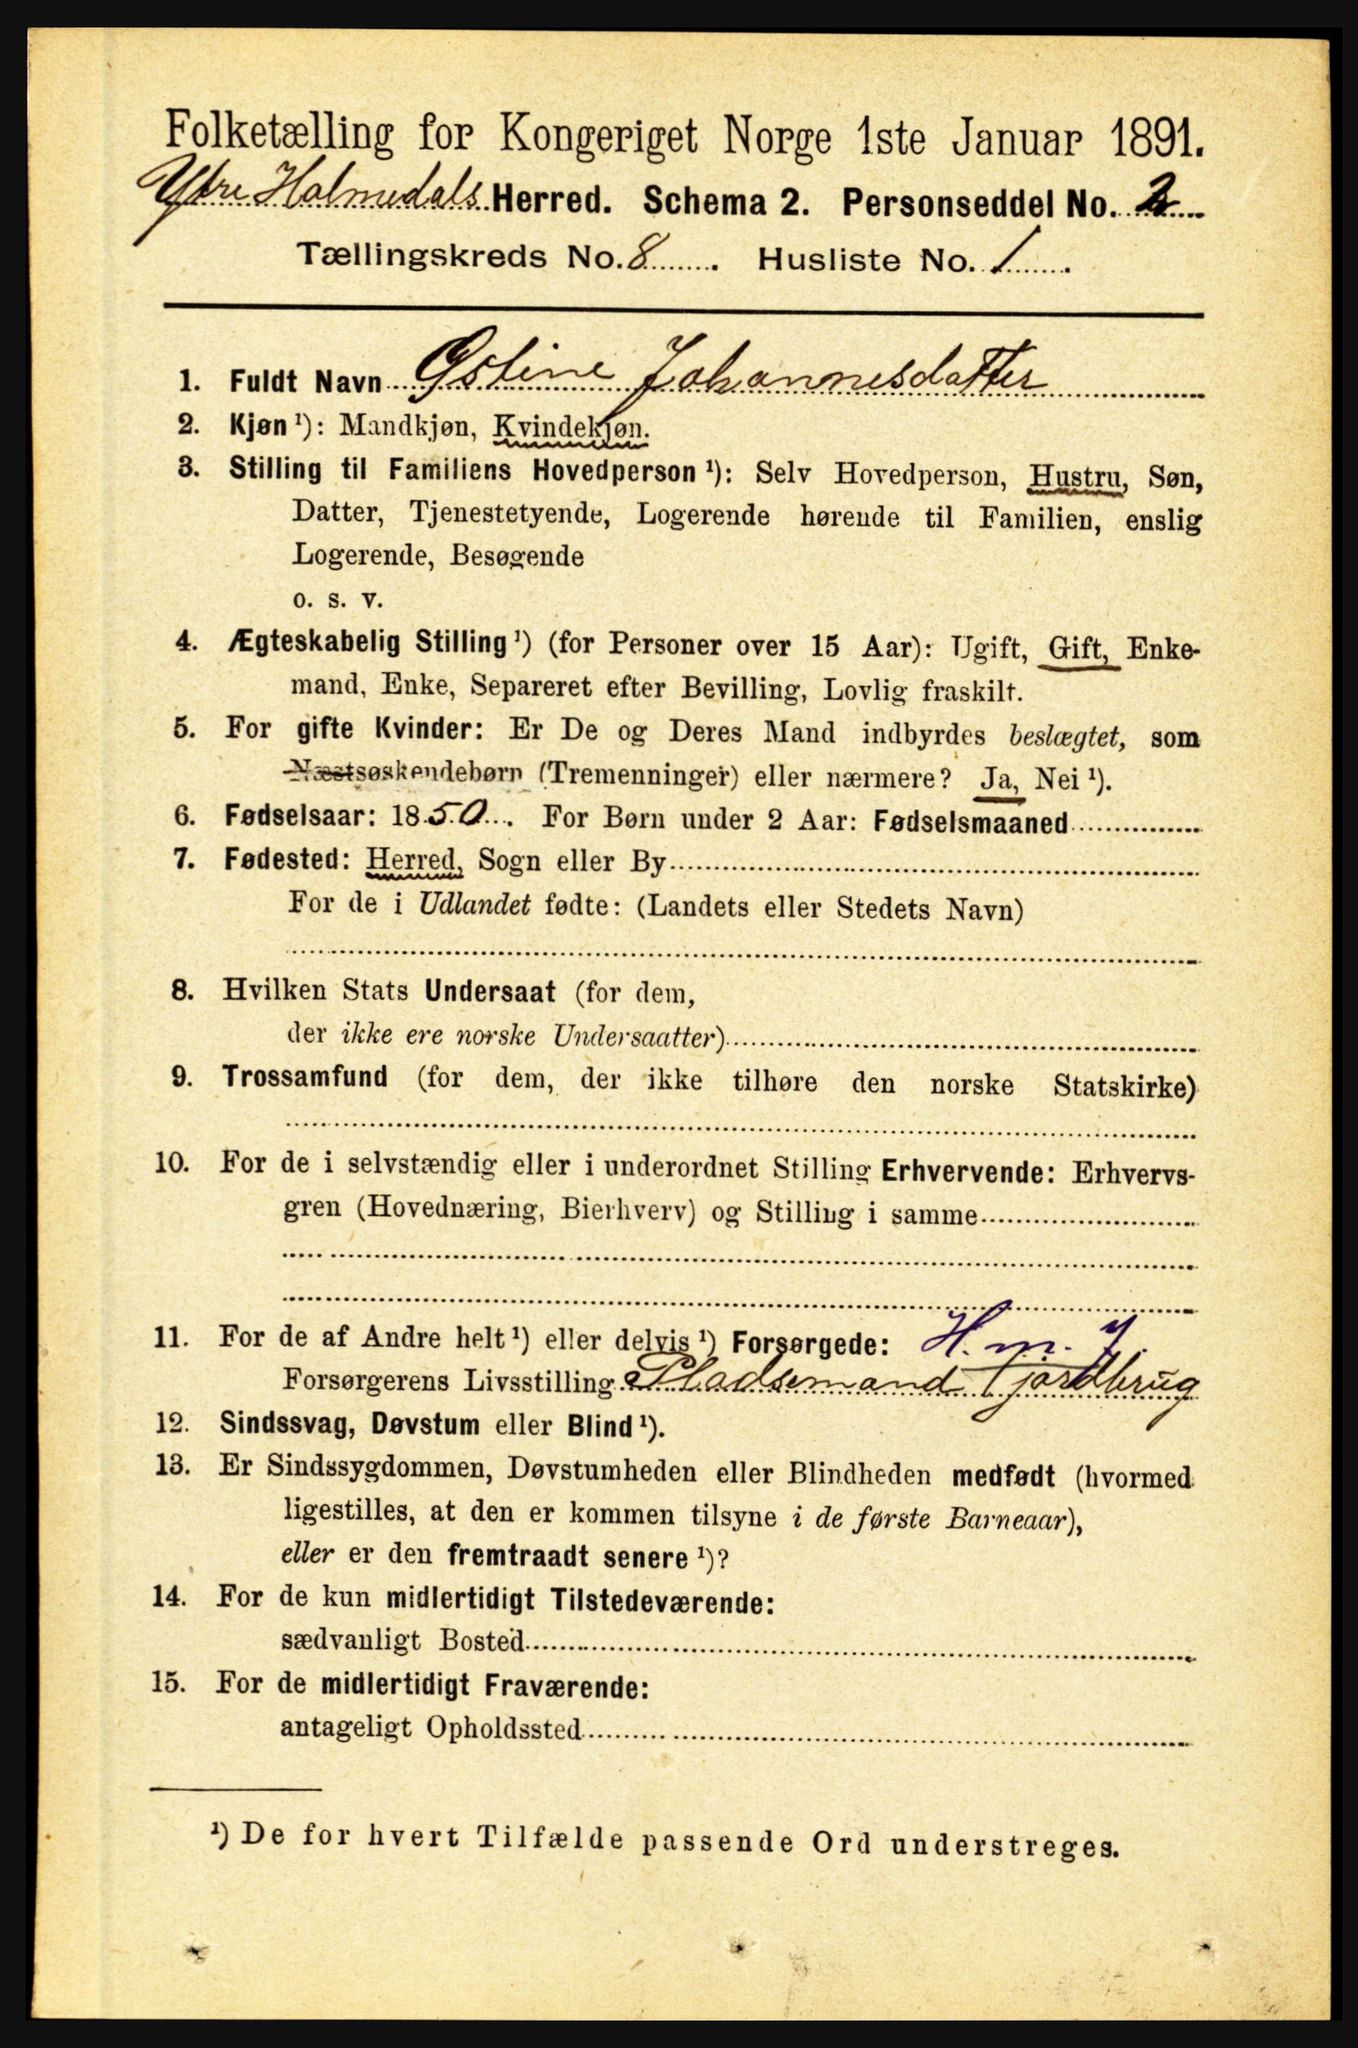 Folketælling for Kongeriget Norge 1ste Januar 1891.
Ydre Holmedals Herred. Schema 2. Personseddel No. 2
Tællingskreds No. 8. Husliste No. 1.
1. Fuldt Navn Østine Johannesdatter
2. Kjøn ¹): Mandkjøn, Kvindekjøn.
3. Stilling til Familiens Hovedperson ¹): Selv Hovedperson, Hustru, Søn,
Datter, Tjenestetyende, Logerende hørende til Familien, enslig
Logerende, Besøgende
o. s. v.
4. Ægteskabelig Stilling ¹) (for Personer over 15 Aar): Ugift, Gift, Enke-
mand, Enke, Separeret efter Bevilling, Lovlig fraskilt.
5. For gifte Kvinder: Er De og Deres Mand indbyrdes beslægtet, som
Næstsøskendebørn (Tremenninger) eller nærmere? Ja, Nei ¹).
6. Fødselsaar: 1850. For Børn under 2 Aar: Fødselsmaaned
7. Fødested: Herred, Sogn eller By
For de i Udlandet fødte: (Landets eller Stedets Navn)
8. Hvilken Stats Undersaat (for dem,
der ikke ere norske Undersaatter)
9. Trossamfund (for dem, der ikke tilhøre den norske Statskirke)
10. For de i selvstændig eller i underordnet Stilling Erhvervende: Erhvervs-
gren (Hovednæring, Bierhverv) og Stilling i samme
11. For de af Andre helt ¹) eller delvis ¹) Forsørgede: H. m. J.
Forsørgerens Livsstilling Pladsemand Fjordbrug
12. Sindssvag, Døvstum eller Blind ¹).
13. Er Sindssygdommen, Døvstumheden eller Blindheden medfødt (hvormed
ligestilles, at den er kommen tilsyne i de første Barneaar),
eller er den fremtraadt senere ¹)?
14. For de kun midlertidigt Tilstedeværende:
sædvanligt Bosted
15. For de midlertidigt Fraværende:
antageligt Opholdssted
¹) De for hvert Tilfælde passende Ord understreges.